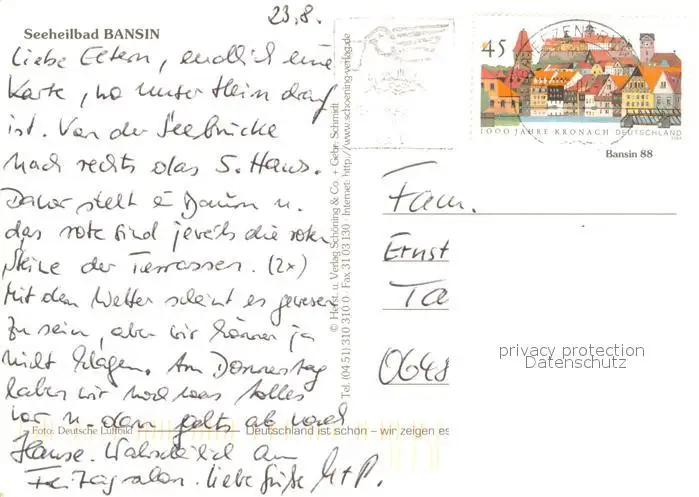 23.8.
Seeheilbad BANSIN
Liebe Eltern, endlich eine
Karte, wo unser Heim drauf
ist. Von der Seebrücke
nach rechts das 5. Haus.
Davor steht e Baum u.
das rote sind jeweils die roten
Steine der Terrassen. (2x)
Mit dem Wetter scheint es gewesen
zu sein, aber wir können ja
nicht klagen. Am Donnerstag
haben wir noch was tolles
vor u. dann gehts ab nach
Hause. Wahrscheinlich am
Freitag schon. Liebe Grüße M+P.
Foto: Deutsche Luftbild
Deutschland ist schön – wir zeigen es
© Herst. u. Verlag Schöning & Co. + Gebr. Schmidt
Tel. (04 51) 310 310 0 · Fax 31 03 130 · Internet: http://www.schoening-verlag.de
45
1000 JAHRE KRONACH DEUTSCHLAND
Bansin 88
Fam.
Ernst
Ta
0648
privacy protection
Datenschutz